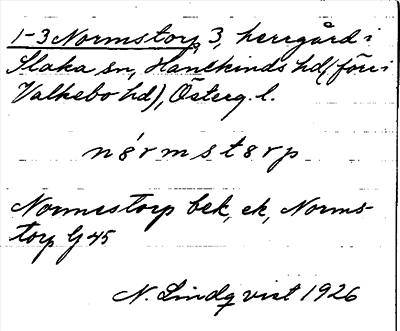 1-3 Normstorp, 3, herrgård i
Slaka sn, Hanekinds hd (förr i
Valkebo hd), Österg. l.
nórmstɵrp
Normstorp bek, ek, Norms-
torp G 45
N. Lindqvist 1926